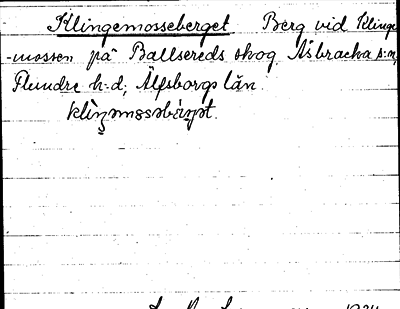 Klingemosseberget Berg vid Klinge
-mossen på Ballsereds skog Åsbräcka s:n,
Flundre h-d, Älfsborgs län.